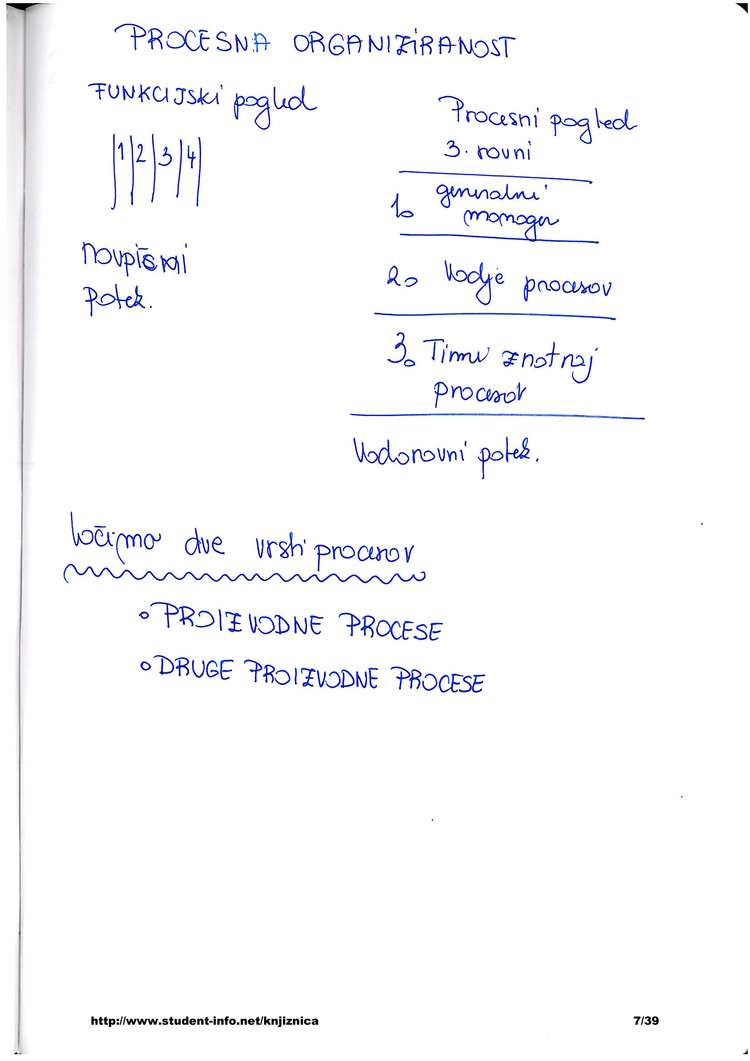 PROCESNA ORGANIZIRANOST
FUNKCIJSKI pogled
1 2 3 4
Navpični
Potek.
Procesni pogled
3. ravni
1. generalni
manager
2. Vodje procesov
3. Timi znotraj
procesov
Vodoravni potek.
Ločimo dve vrsti procesov
• PROIZVODNE PROCESE
• DRUGE PROIZVODNE PROCESE
http://www.student-info.net/knjiznica
7/39